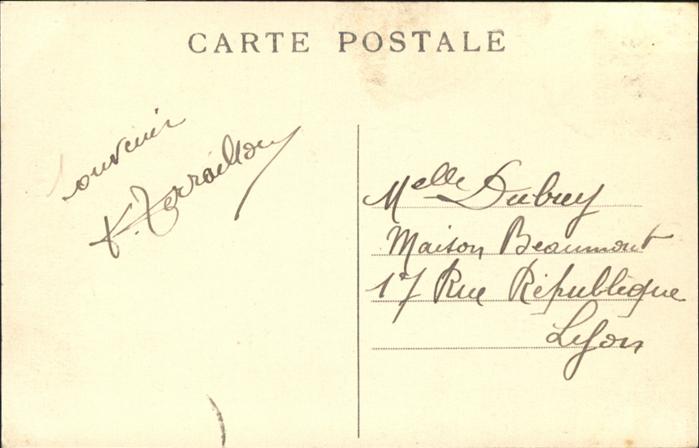 CARTE POSTALE
Souvenir
Melle Dubuy
Maison Beaumont
17 Rue République
Lyon